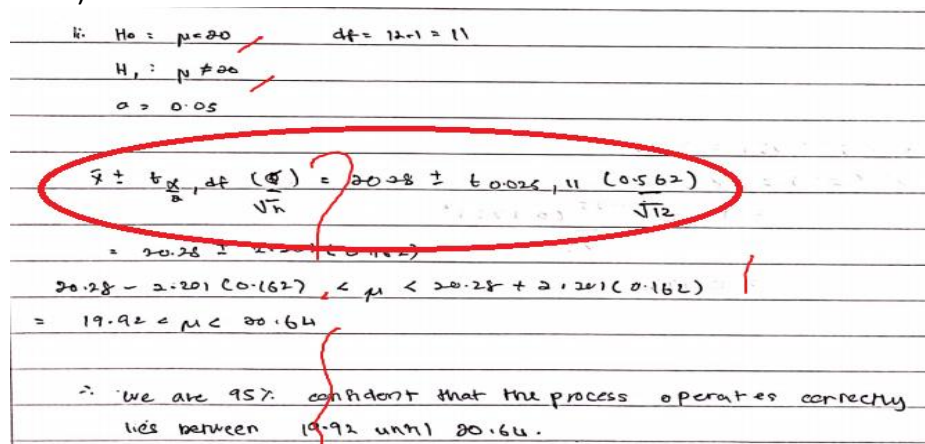 ii. H₀ : μ = 20 df = 12-1 = 11
H₁ : μ ≠ 20
α = 0.05
x̄ ± t α/2, df (s/√n) = 20.28 ± t 0.025, 11 (0.562/√12)
= 20.28 ± 2.201 (0.162)
20.28 - 2.201 (0.162) < μ < 20.28 + 2.201 (0.162)
= 19.92 < μ < 20.64
∴ we are 95% confident that the process operates correctly
lies between 19.92 until 20.64.